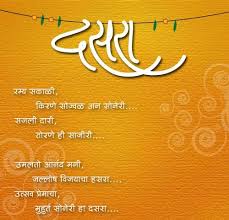 दसरा
रम्य सकाळी,
किरणे सोज्वळ अन सोनेरी....
सजली दारी,
तोरणे ही साजीरी....
उमलतो आनंद मनी,
जल्लोष विजयाचा हसरा....
उत्सव प्रेमाचा,
मुहूर्त सोनेरी हा दसरा....